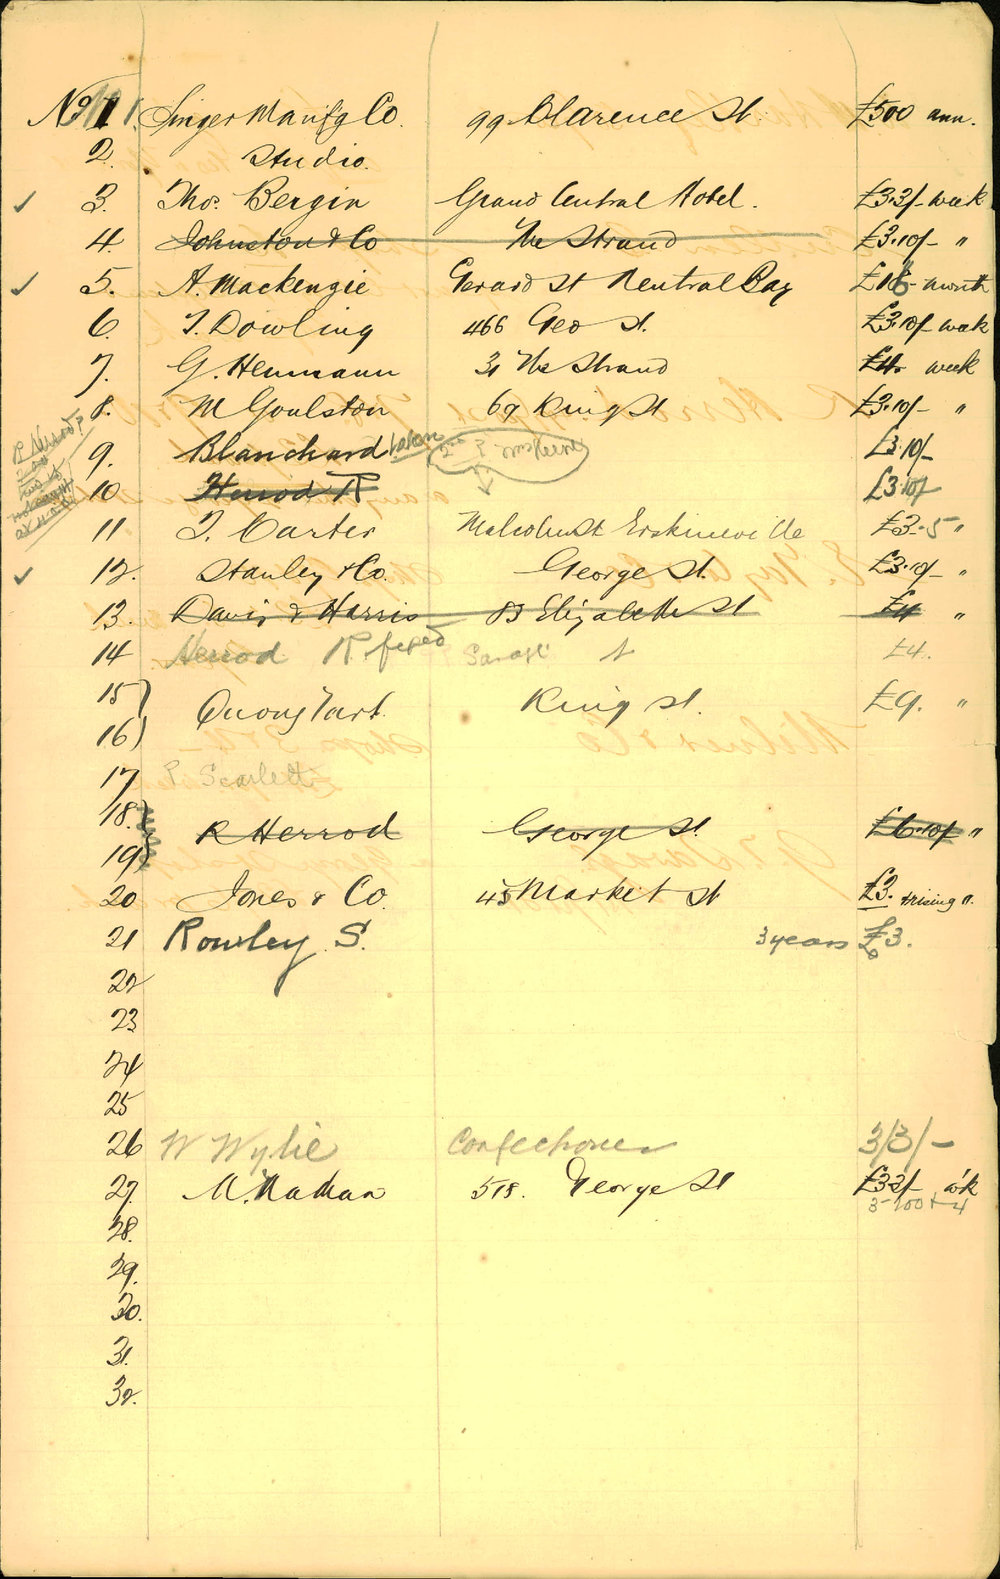 No 1 Singer Manifg Co. 99 Clarence St. £500 ann.
2. Studio.
3. Thos. Bergin Grand Central Hotel. £3.3/- week
4. Johnston & Co The Strand £3.10/- "
5. A. Mackenzie Gerard St Neutral Bay month
6. T. Dowling 466 Geo St. £3.10/- week
7. G. Heumann 31 The Strand £4. week
8. M Goulston 69 King St £3.10/- "
9. Blanchard taken £3.10/-
10 Herrod R £3.10/-
11 T. Carter Malcolm St Erskineville £3.-5 "
12. Stanley & Co. George St. £3.10/- "
13. Davis & Harris 83 Elizabeth St £4 "
14 Herrod R. fixed £4.
15)
16) Quong Tart. King St. £9. "
17 Scarlett
18)
19) R Herrod George St. £6.10/- "
20 Jones & Co. 45 Market St £3. rising ".
21 Rowley S. 3 years £3.
22
23
24
25
26 W Wylie Confectioner 3/3/-
27. McMahan 518. George St £3 3/- w'k
28.
29.
30.
31.
32.